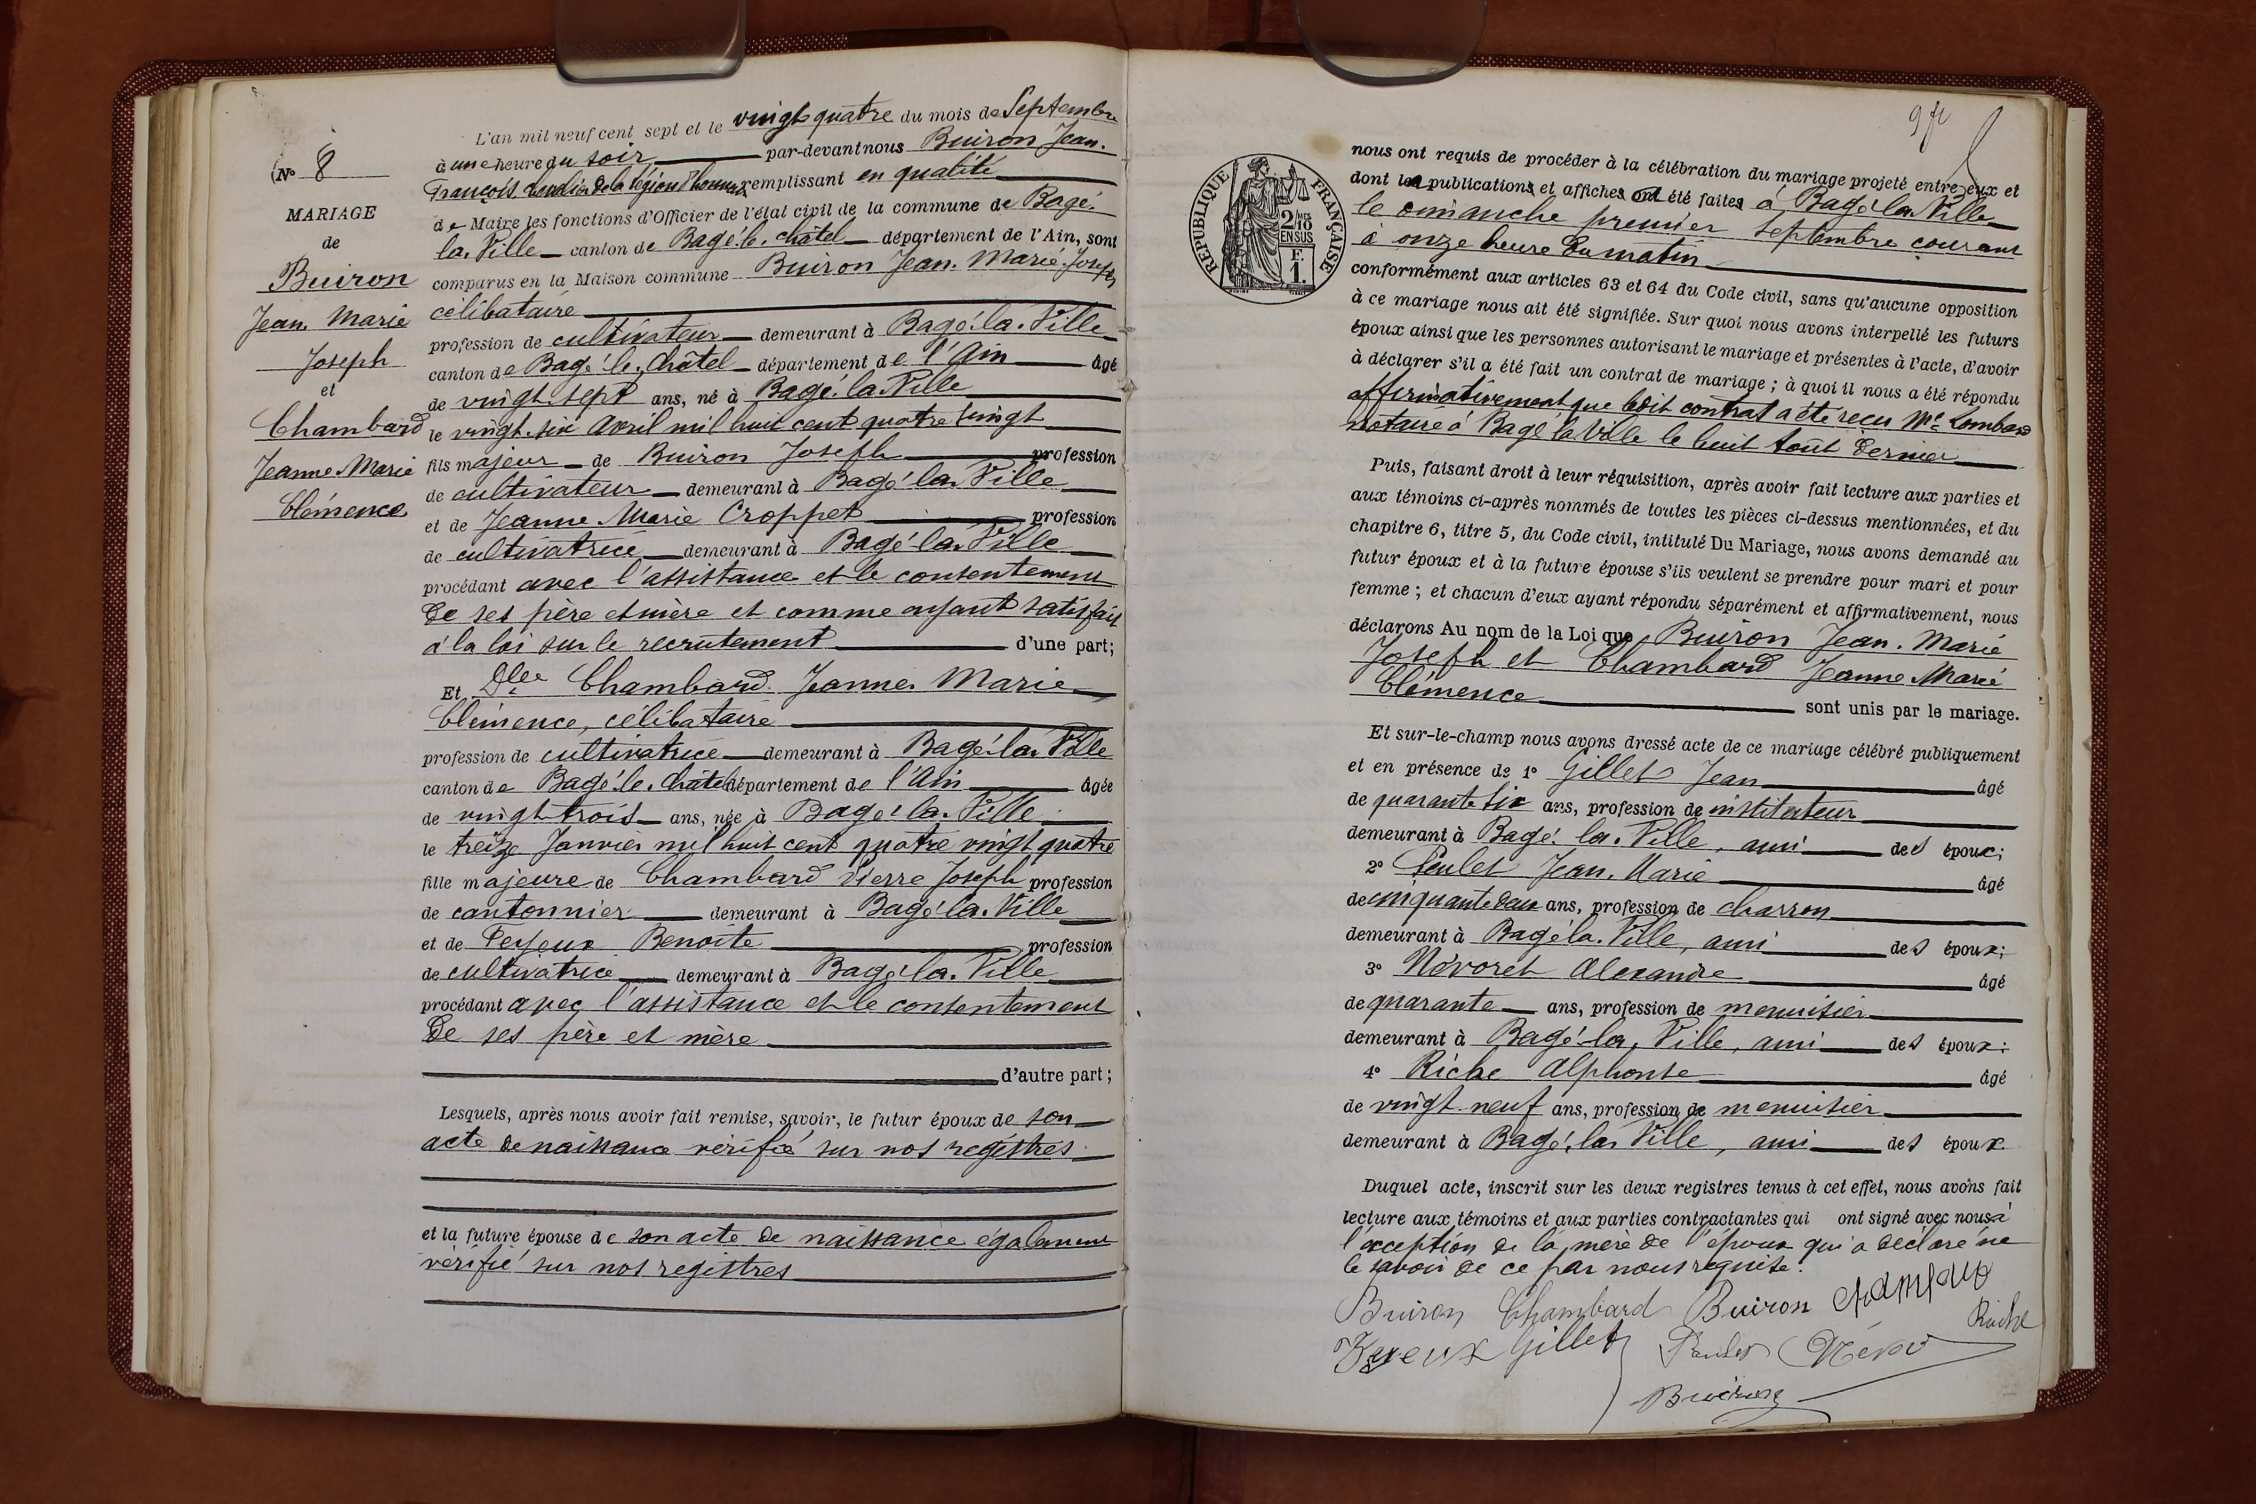 (No 8
MARIAGE
de
Buiron
Jean Marie
Joseph
et
Chambard
Jeanne Marie
Clémence
L'an mil neuf cent sept et le vingt quatre du mois de Septembre
à une heure du soir par-devant nous Buiron Jean.
François de la légion d'honneur remplissant en qualité
de Maire les fonctions d'Officier de l'état civil de la commune de Bagé.
la. Ville canton de Bagé. le. châtel département de l'Ain, sont
comparus en la Maison commune Buiron Jean. Marie. Joseph
célibataire
profession de cultivateur demeurant à Bagé. la. Ville
canton de Bagé le. Châtel département de l'Ain âgé
de vingt. sept ans, né à Bagé. la Ville
le vingt. six Avril mil huit cent quatre vingt
fils majeur de Buiron Joseph profession
de cultivateur demeurant à Bagé la Ville
et de Jeanne Marie Croppet profession
de cultivatrice demeurant à Bagé la Ville
procédant avec l'assistance et le consentement
de ses père et mère et comme ayant satisfait
à la loi sur le recrutement d'une part;
Et Dlle Chambard Jeanne Marie
Clémence, célibataire
profession de cultivatrice demeurant à Bagé. la Ville
canton de Bagé. le. châtel département de l'Ain âgée
de vingt trois ans, née à Bagé la. Ville
le treize Janvier mil huit cent quatre vingt quatre
fille majeure de Chambard Pierre Joseph profession
de cantonnier demeurant à Bagé la. Ville
et de Feyeux Benoîte profession
de cultivatrice demeurant à Bagé la. Ville
procédant avec l'assistance et le consentement
de ses père et mère
d'autre part;
Lesquels, après nous avoir fait remise, savoir, le futur époux de son
acte de naissance vérifié sur nos registres
et la future épouse de son acte de naissance également
vérifié sur nos registres
RÉPUBLIQUE FRANÇAISE
2/10
EN SUS
F.
1.
nous ont requis de procéder à la célébration du mariage projeté entre eux et
dont les publications et affiches ont été faites à Bagé la Ville
le dimanche premier septembre courant
à onze heure du matin
conformément aux articles 63 et 64 du Code civil, sans qu'aucune opposition
à ce mariage nous ait été signifiée. Sur quoi nous avons interpellé les futurs
époux ainsi que les personnes autorisant le mariage et présentes à l'acte, d'avoir
à déclarer s'il a été fait un contrat de mariage; à quoi il nous a été répondu
affirmativement que ledit contrat a été reçu Me Lombard
notaire à Bagé la Ville le huit août dernier
Puis, faisant droit à leur réquisition, après avoir fait lecture aux parties et
aux témoins ci-après nommés de toutes les pièces ci-dessus mentionnées, et du
chapitre 6, titre 5, du Code civil, intitulé Du Mariage, nous avons demandé au
futur époux et à la future épouse s'ils veulent se prendre pour mari et pour
femme; et chacun d'eux ayant répondu séparément et affirmativement, nous
déclarons Au nom de la Loi que Buiron Jean. Marie
Joseph et Chambard Jeanne Marie
Clémence sont unis par le mariage.
Et sur-le-champ nous avons dressé acte de ce mariage célébré publiquement
et en présence de 1° Gillet Jean âgé
de quarante six ans, profession de instituteur
demeurant à Bagé la. Ville, ami des époux;
2° Peulet Jean. Marie âgé
de cinquante deux ans, profession de charron
demeurant à Bagé la. Ville, ami des époux;
3° Névoret Alexandre âgé
de quarante ans, profession de menuisier
demeurant à Bagé la. Ville, ami des époux;
4° Riche Alphonse âgé
de vingt. neuf ans, profession de menuisier
demeurant à Bagé la Ville, ami des époux
Duquel acte, inscrit sur les deux registres tenus à cet effet, nous avons fait
lecture aux témoins et aux parties contractantes qui ont signé avec nous à
l'exception de la mère de l'époux qui a déclaré ne
le savoir de ce par nous requise.
Buiron Chambard Buiron Chambard
Feyeux Gillet Peulet Riche
Buiron